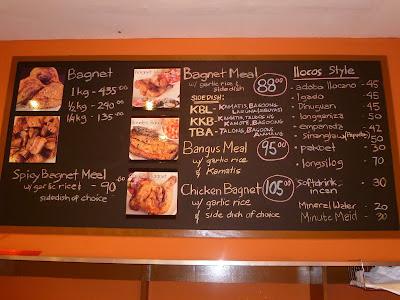 Bagnet
1 kg - 435.00
1/2 kg - 240.00
1/4 kg - 135.00
Spicy Bagnet Meal
w/ garlic rice &
sidedish of choice - 90.00
Bagnet Meal
w/ garlic rice &
sidedish
88.00
SIDE DISH:
KBL - KAMATIS, BAGOONG
LASUNA (SIBUYAS)
KKB -
KAMOTE, BAGOONG
TBA - TALONG, BAGOONG
Bangus Meal
w/ garlic rice
& Kamatis
95.00
Chicken Bagnet
w/ garlic rice
& side dish of choice
105.00
Ilocos Style
adobo Ilocano - 45
Igado - 45
Dinuguan - 45
longganiza - 50
empanada - 42
sinanglaw (Papaitan) - 50
pakbet - 30
longsilog - 70
Softdrink
in can - 30
Mineral Water - 20
Minute Maid - 30